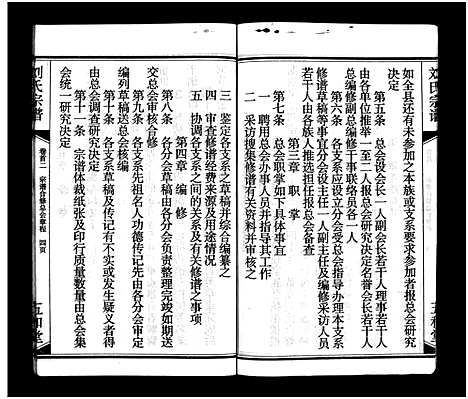 刘氏宗谱
如全县还有未参加之本族或支系要求参加者报总会研究决定
第五条 总会设会长一人副会长若干人理事若干人
由各单位推举一至二人报总会研究决定名誉会长若干人
总编修副总编修干事联络员各一人
第六条 各支系应设立分会受总会指导办理本支系
修谱草稿等事宜分会设主任一人副主任及编修采访人员
若干人由各族人推选担任报总会备查
第三章 职掌
第七条 总会职掌如下具体事宜
一 聘用总会办事人员并指导其工作
二 采访搜集修谱有关资料并审核之
三 鉴定各支系之草稿并综合编纂之
四 审查修谱经费来源及用途情况
五 协调各支系之间的关系及有关修谱之事项
第四章 编修
第八条 各分会草稿由各分会负责整理完竣如期送
交总会审核合修
第九条 各支系先祖名人功德传记先由各分会审定
编列草稿送总会核编
第十条 各支系草稿及传记有不实或发生疑义
由总会调查研究决定
第十一条 宗谱体裁纸张及印行质量数量由总会集
会统一研究决定
刘氏宗谱
卷首二 宗谱合修总会章程 四页
五和堂